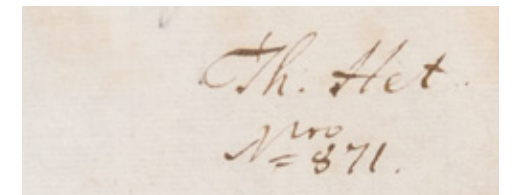 Th. Het.
Nro 871.